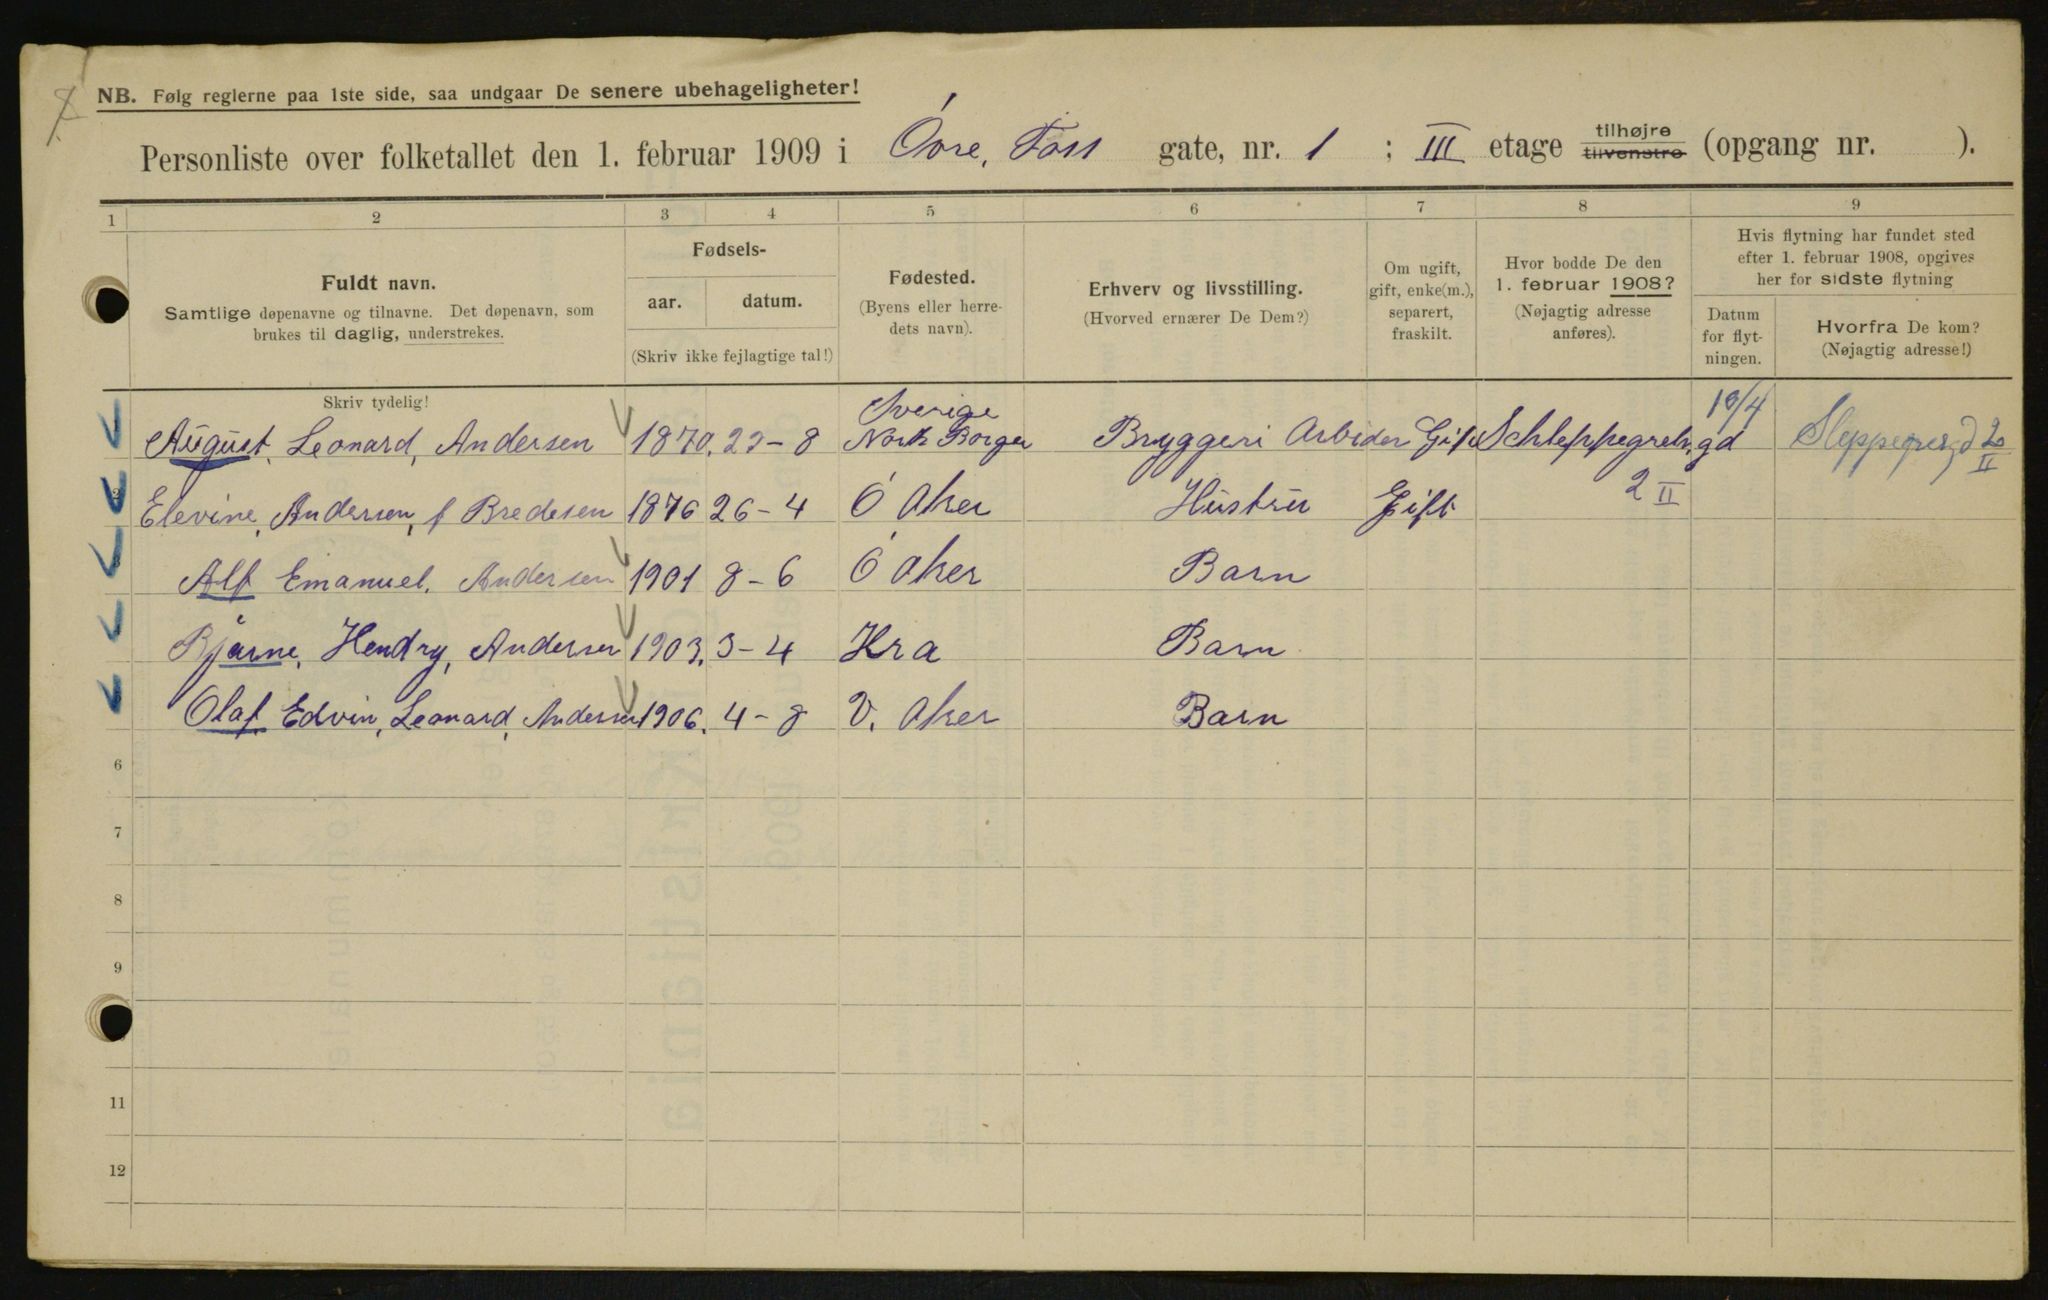 NB. Følg reglerne paa 1ste side, saa undgaar De senere ubehageligheter!
Personliste over folketallet den 1. februar 1909 i Övre, Foss gate, nr. 1 ; III etage tilhøjre tilvenstre (opgang nr. ).
1 2 3 4 5 6 7 8 9
Fuldt navn.
Samtlige døpenavne og tilnavne. Det døpenavn, som
brukes til daglig, understrekes.
Fødsels-
aar. datum.
(Skriv ikke fejlagtige tal!)
Fødested.
(Byens eller herre-
dets navn).
Erhverv og livsstilling.
(Hvorved ernærer De Dem?)
Om ugift,
gift, enke(m.),
separert,
fraskilt.
Hvor bodde De den
1. februar 1908?
(Nøjagtig adresse
anføres).
Hvis flytning har fundet sted
efter 1. februar 1908, opgives
her for sidste flytning
Datum
for flyt-
ningen.
Hvorfra De kom?
(Nøjagtig adresse!)
Skriv tydelig!
August, Leonard, Andersen 1870. 23-8 Sverige Nor Borger Bryggeri Arbider Gift Schleppegrels, gd 2 II
Elevine, Andersen, f Bredesen 1876 26-4 Ö Aker Hüstrü Gift
Alf Emanuel, Andersen 1901 8-6 Ö Aker Barn
Bjarne, Hendry, Andersen 1903. 3-4 Kra Barn
Olaf Edvin, Leonard, Andersen 1906. 4-8 V. Aker Barn
6
7
8
9
11
12